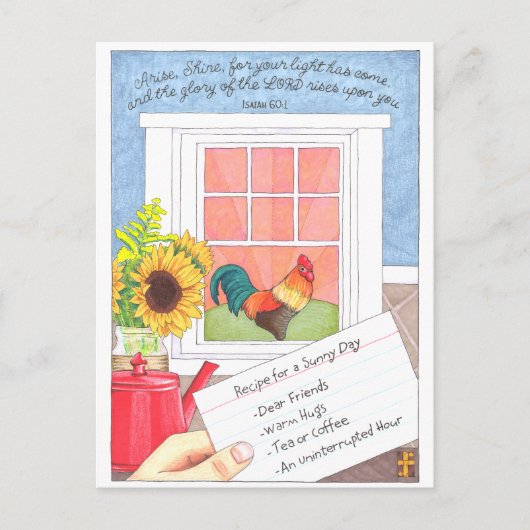 Arise, Shine, for your light has come,
and the glory of the LORD rises upon you
ISAIAH 60:1
Recipe for a Sunny Day
-Dear Friends
-Warm Hugs
-Tea or Coffee
-An Uninterrupted Hour